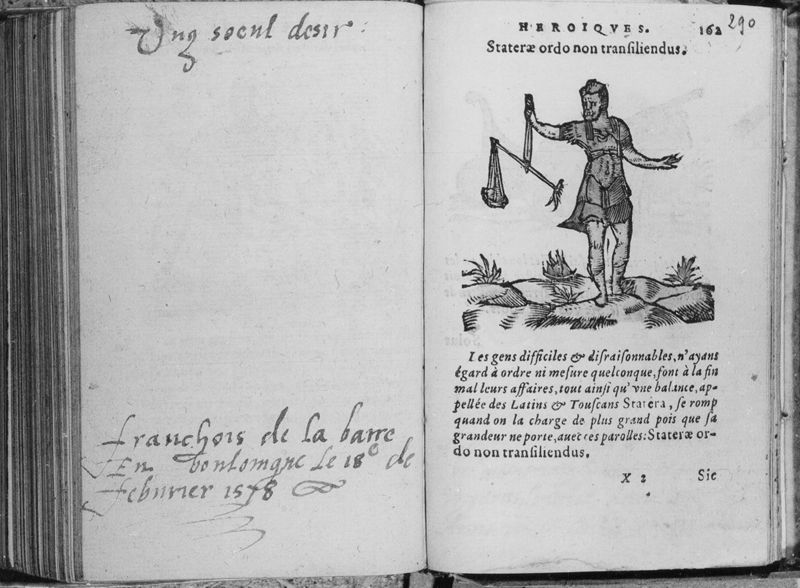 Ung soeul desir
franchois de la barre
En boulomgne le 18e de
febvrier 1578
HEROIQVES.
162
290
Stateræ ordo non transiliendus.
Les gens difficiles & disraisonnables, n'ayans
égard à ordre ni mesure quelconque, font à la fin
mal leurs affaires, tout ainsi qu'vne balance, ap-
pellée des Latins & Touscans Statera, se romp
quand on la charge de plus grand pois que sa
grandeur ne porte, auec ces parolles: Stateræ or-
do non transiliendus.
X 2
Sic